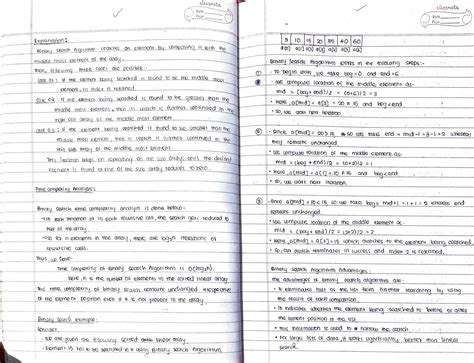 Explanation:
Binary Search Algorithm searches an element by comparing it with the
middle most element of the array.
Then, following three cases are possible:-
Case 01: If the element being searched is found to be the middle most
element, its index is returned.
Case 02: If the element being searched is found to be greater than the
middle most element, then its search is further continued in the
right sub array of the middle most element.
Case 03: If the element being searched is found to be smaller than the
middle most element, then its search is further continued in the
left sub array of the middle most element.
This iteration keeps on repeating on the sub arrays until the desired
element is found or size of the sub array reduces to zero.
Time Complexity Analysis:
Binary Search time complexity analysis is done below-
→ In each iteration or in each recursive call, the search gets reduced to
half of the array.
→ So for n elements in the array, there are log₂n iterations or
recursive calls.
Thus, we have-
Time Complexity of Binary Search Algorithm is O(log₂n).
Here, n is the number of elements in the sorted linear array.
This time complexity of binary search remains unchanged irrespective
of the element position even if it is not present in the array.
Binary Search Example:
Consider,
• We are given the following sorted linear array.
• Element 15 has to be searched in it using Binary Search Algorithm.
classmate
Date
Page
3 10 15 20 35 40 60
a[0] a[1] a[2] a[3] a[4] a[5] a[6]
Binary Search Algorithm works in the following steps:-
• To begin with, we take beg=0 and end=6.
• We compute location of the middle element as-
mid = (beg+end)/2 = (0+6)/2 = 3
• Here, a[mid] = a[3] = 20 ≠ 15 and beg < end.
• So, we start next iteration.
② • Since a[mid] = 20 > 15, so we take end = mid-1 = 3-1 = 2 whereas
beg remains unchanged.
• We compute location of the middle element as-
mid = (beg+end)/2 = (0+2)/2 = 1
• Here, a[mid] = a[1] = 10 ≠ 15 and beg < end.
• So, we start next iteration.
③ • Since a[mid] = 10 < 15, so we take beg = mid+1 = 1+1 = 2 whereas end
remains unchanged.
• We compute location of the middle element as-
mid = (beg+end)/2 = (2+2)/2 = 2
• Here, a[mid] = a[2] = 15 which matches to the element being searched.
• So, our search terminates in success and index 2 is returned.
Binary Search Algorithm Advantages:
The advantages of binary search algorithm are-
• It eliminates half of the list from further searching by using
the result of each comparison.
• It indicates whether the element being searched is before or after
the current position in the list.
• This information is used to narrow the search.
• For large lists of data, it works significantly better than linear search.